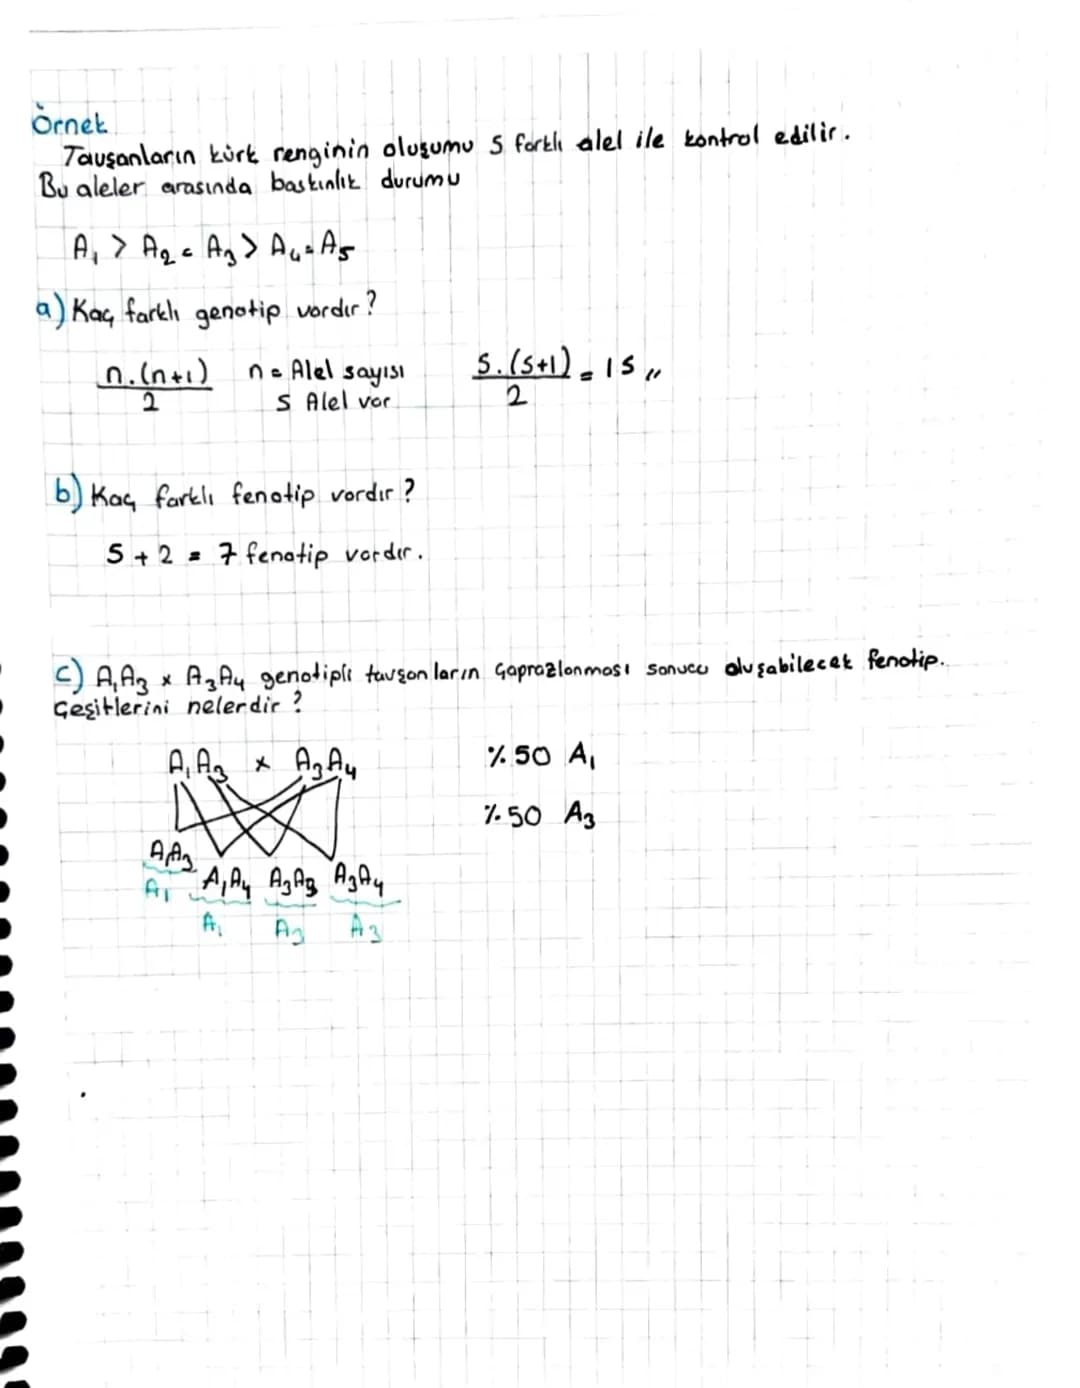 Örnek
Tavşanların kürk renginin oluşumu 5 farklı alel ile kontrol edilir.
Bu aleler arasında baskınlık durumu
A₁ > A₂ = A₃ > A₄ = A₅
a) Kaç farklı genotip vardır?
n.(n+1)/2 n = Alel sayısı 5.(5+1)/2 = 15 //
5 Alel var
b) Kaç farklı fenotip vardır?
5 + 2 = 7 fenotip vardır.
c) A₁A₃ x A₃A₄ genotipli tavşanların Çaprazlanması sonucu oluşabilecek fenotip.
Çeşitlerini nelerdir?
A₁A₃ x A₃A₄ %50 A₁
%50 A₃
A₁A₃ A₁A₄ A₃A₃ A₃A₄
A₁ A₁ A₃ A₃